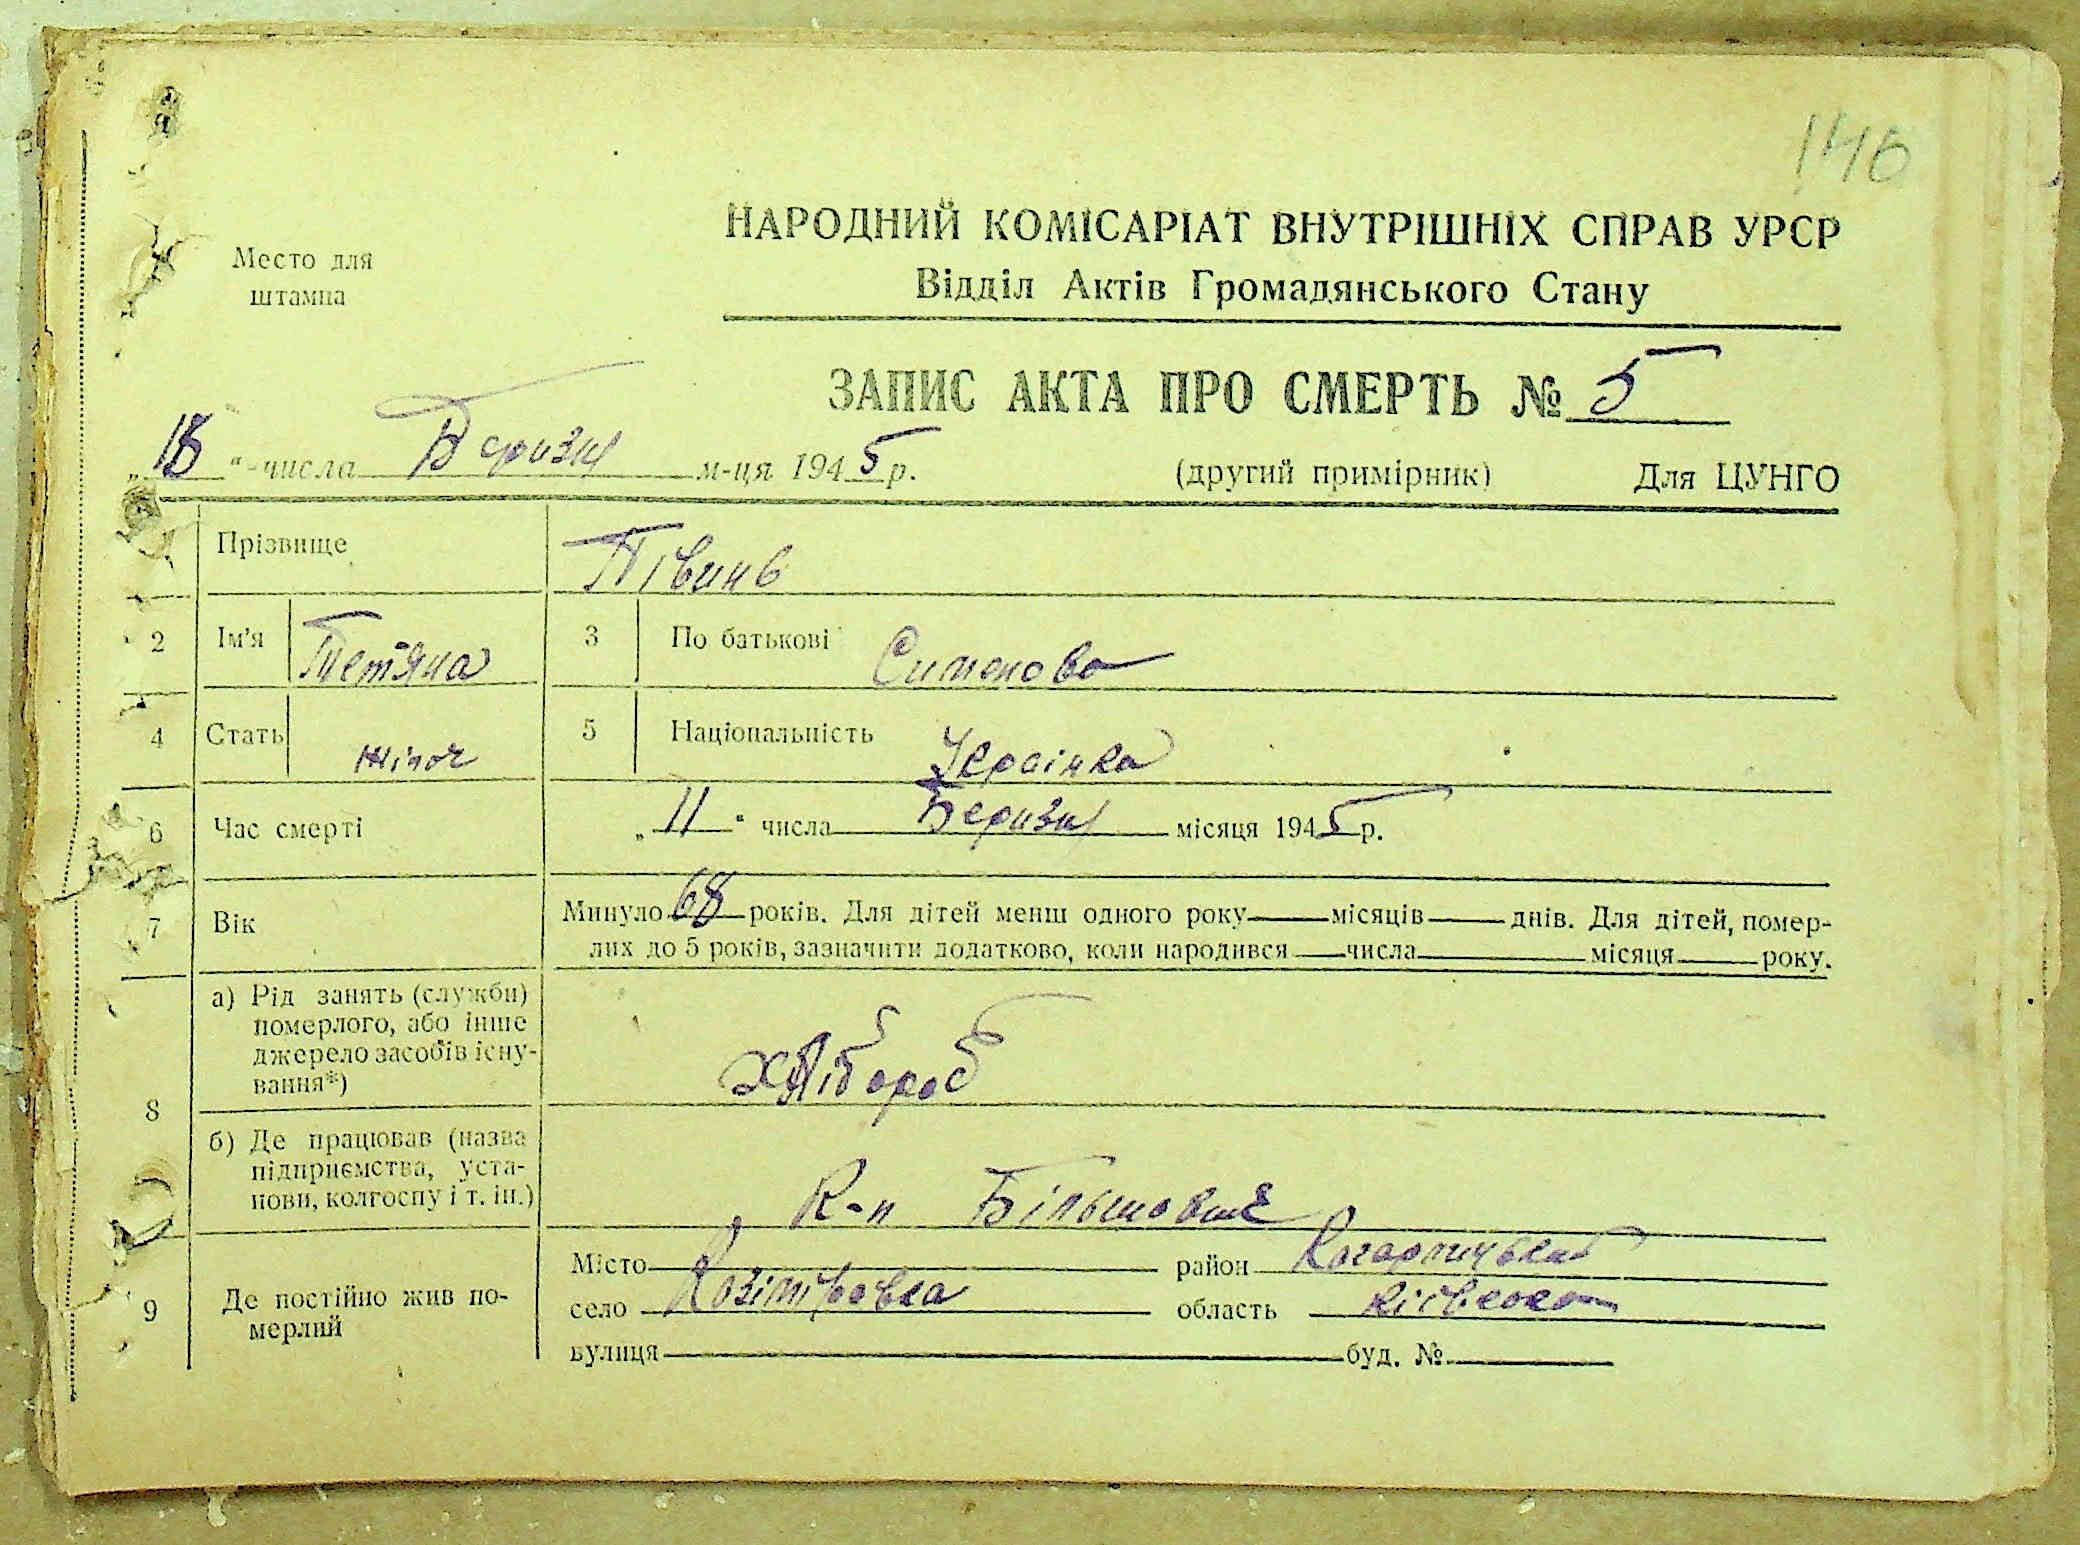 146
НАРОДНИЙ КОМІСАРІАТ ВНУТРІШНІХ СПРАВ УРСР
Место для штампа
Відділ Актів Громадянського Стану
ЗАПИС АКТА ПРО СМЕРТЬ № 5
„18“ числа Беризн м-ця 1945 р. (другий примірник) Для ЦУНГО
Прізвище Півинь
2 Ім'я Тетяна 3 По батькові Сименова
4 Стать жіноч 5 Національність Українка
6 Час смерті „11“ числа Беризн місяця 1945 р.
7 Вік Минуло 68 років. Для дітей менш одного року місяців днів. Для дітей, помер-
лих до 5 років, зазначити додатково, коли народився числа місяця року.
8 а) Рід занять (служби)
померлого, або інше
джерело засобів існу-
вання*) Хлібороб
б) Де працював (назва
підприємства, уста-
нови, колгоспу і т. ін.) К-п Більшовик
9 Де постійно жив по-
мерлий
Місто район Кагарлицький
село Козіміровка область Київская
вулиця буд. №